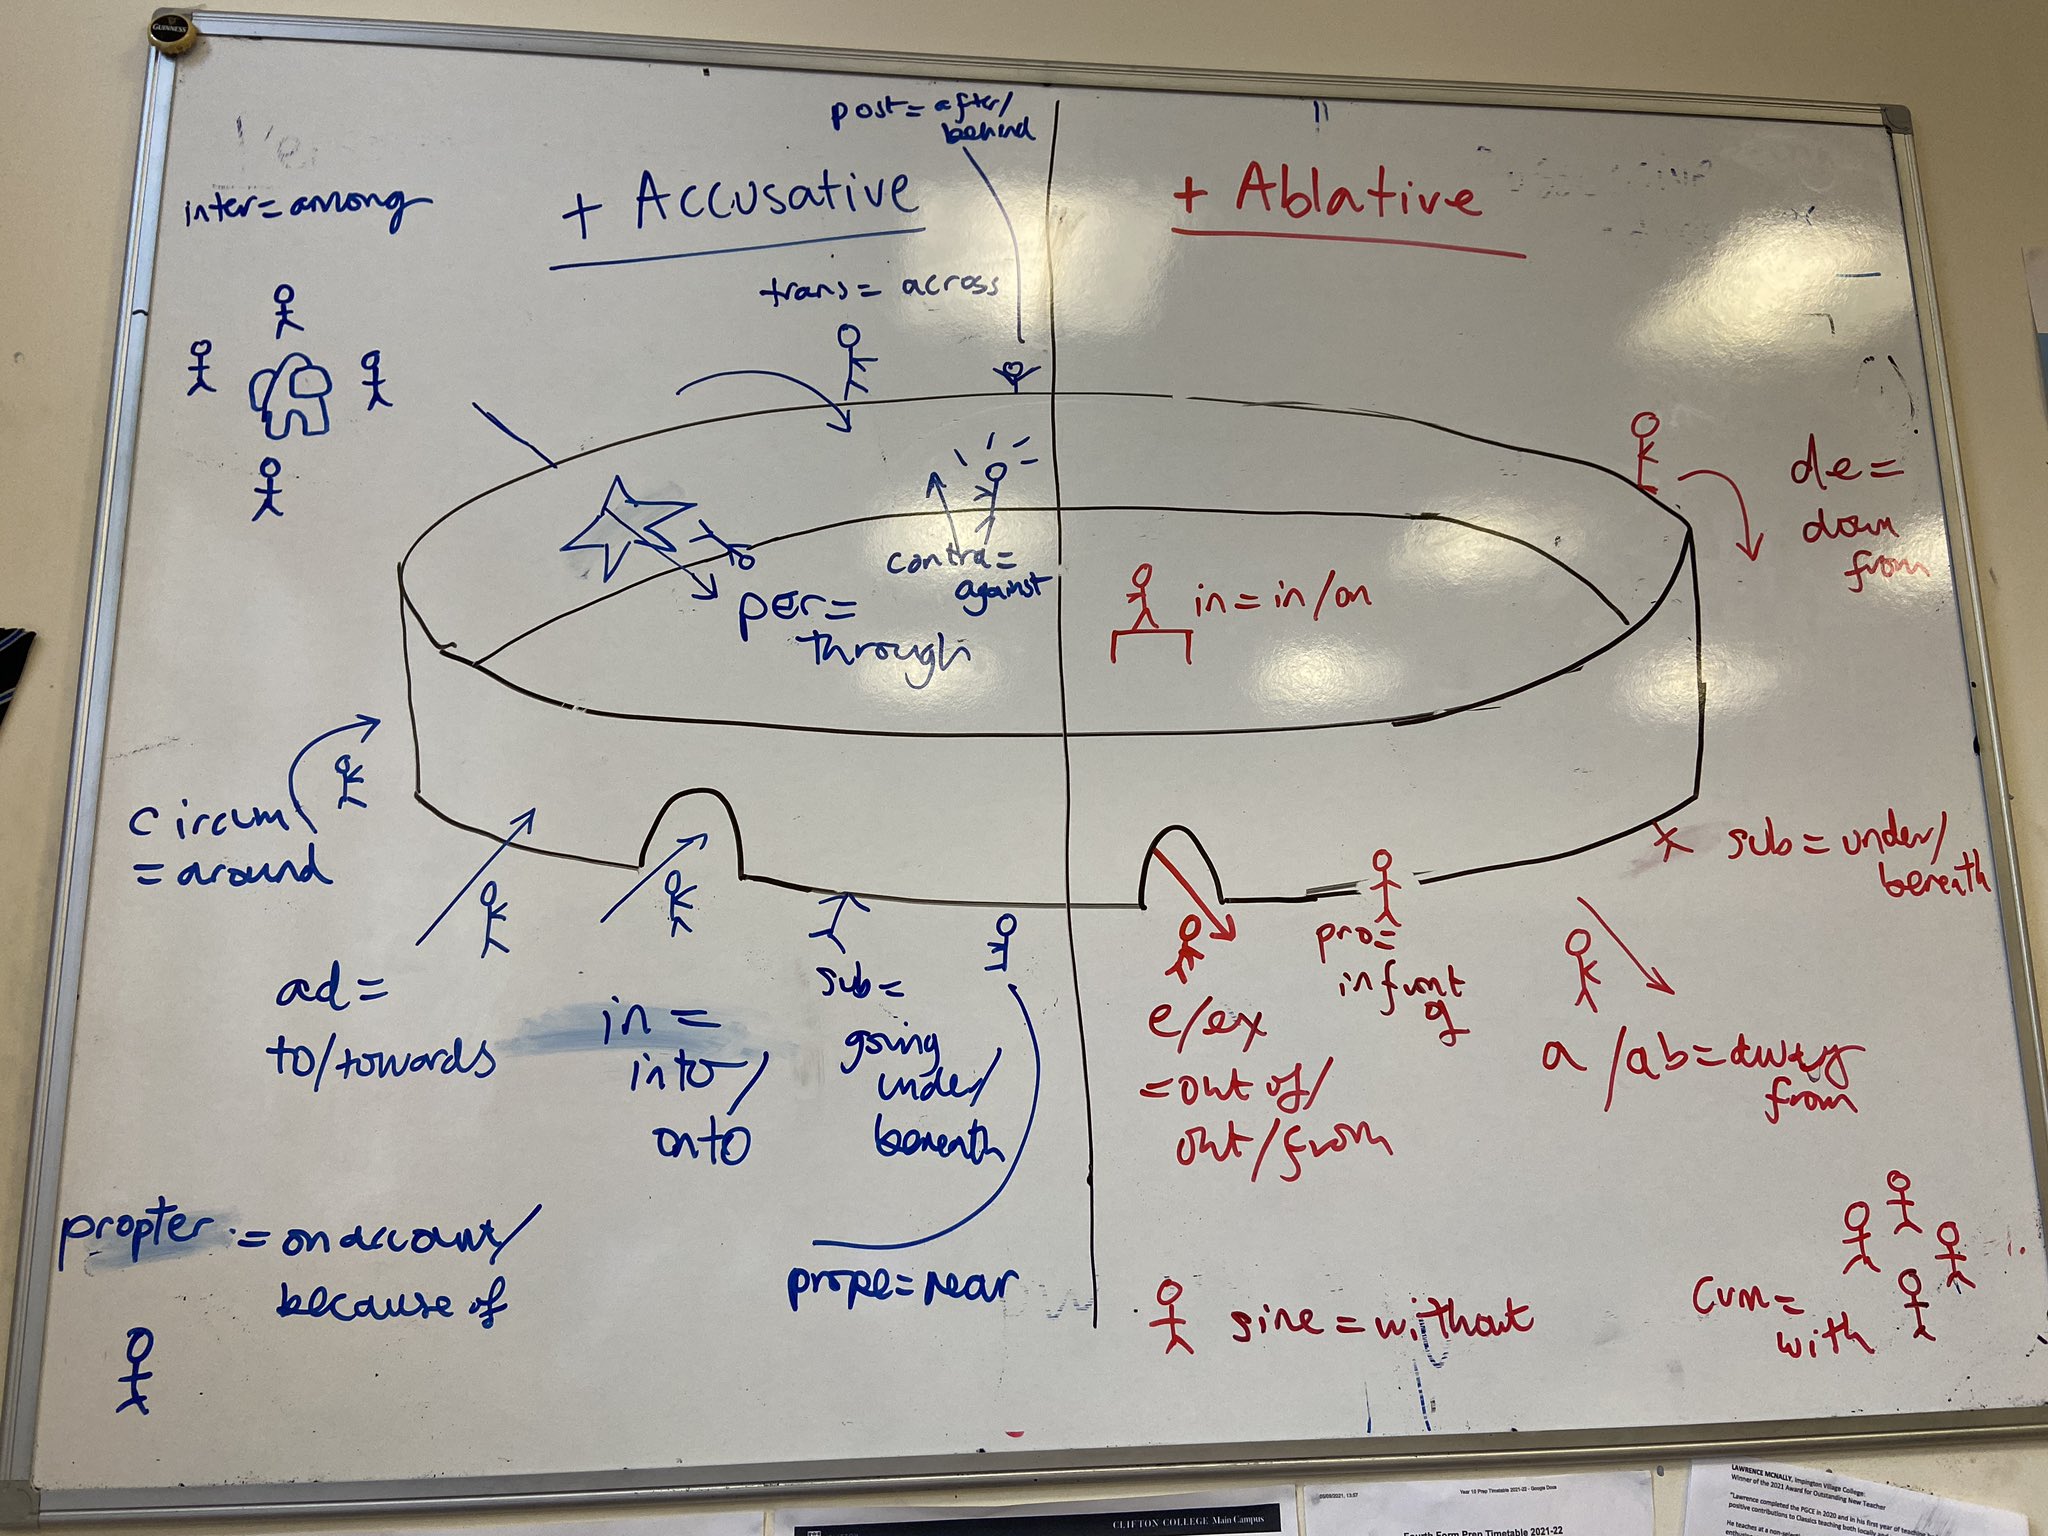 GUINNESS
post = after/
behind
inter = among
+ Accusative
+ Ablative
trans = across
de =
down
from
contra =
against
per =
through
in = in/on
circum
= around
sub = under/
beneath
ad =
to/towards
in =
into/
onto
sub =
going
under/
beneath
pro =
in front
of
e/ex
= out of/
out/from
a/ab = away
from
propter = on account/
because of
prope = near
sine = without
cum =
with
CLIFTON COLLEGE Main Campus
Year 10 Prep Timetable 2021-22 - Google Docs
Fourth Form Prep Timetable 2021-22
LAWRENCE MCNALLY, Impington Village College:
Winner of the 2021 Award for Outstanding New Teacher
"Lawrence completed the PGCE in 2020 and in his first year of
positive contributions to Classics teaching both locally
He teaches at a